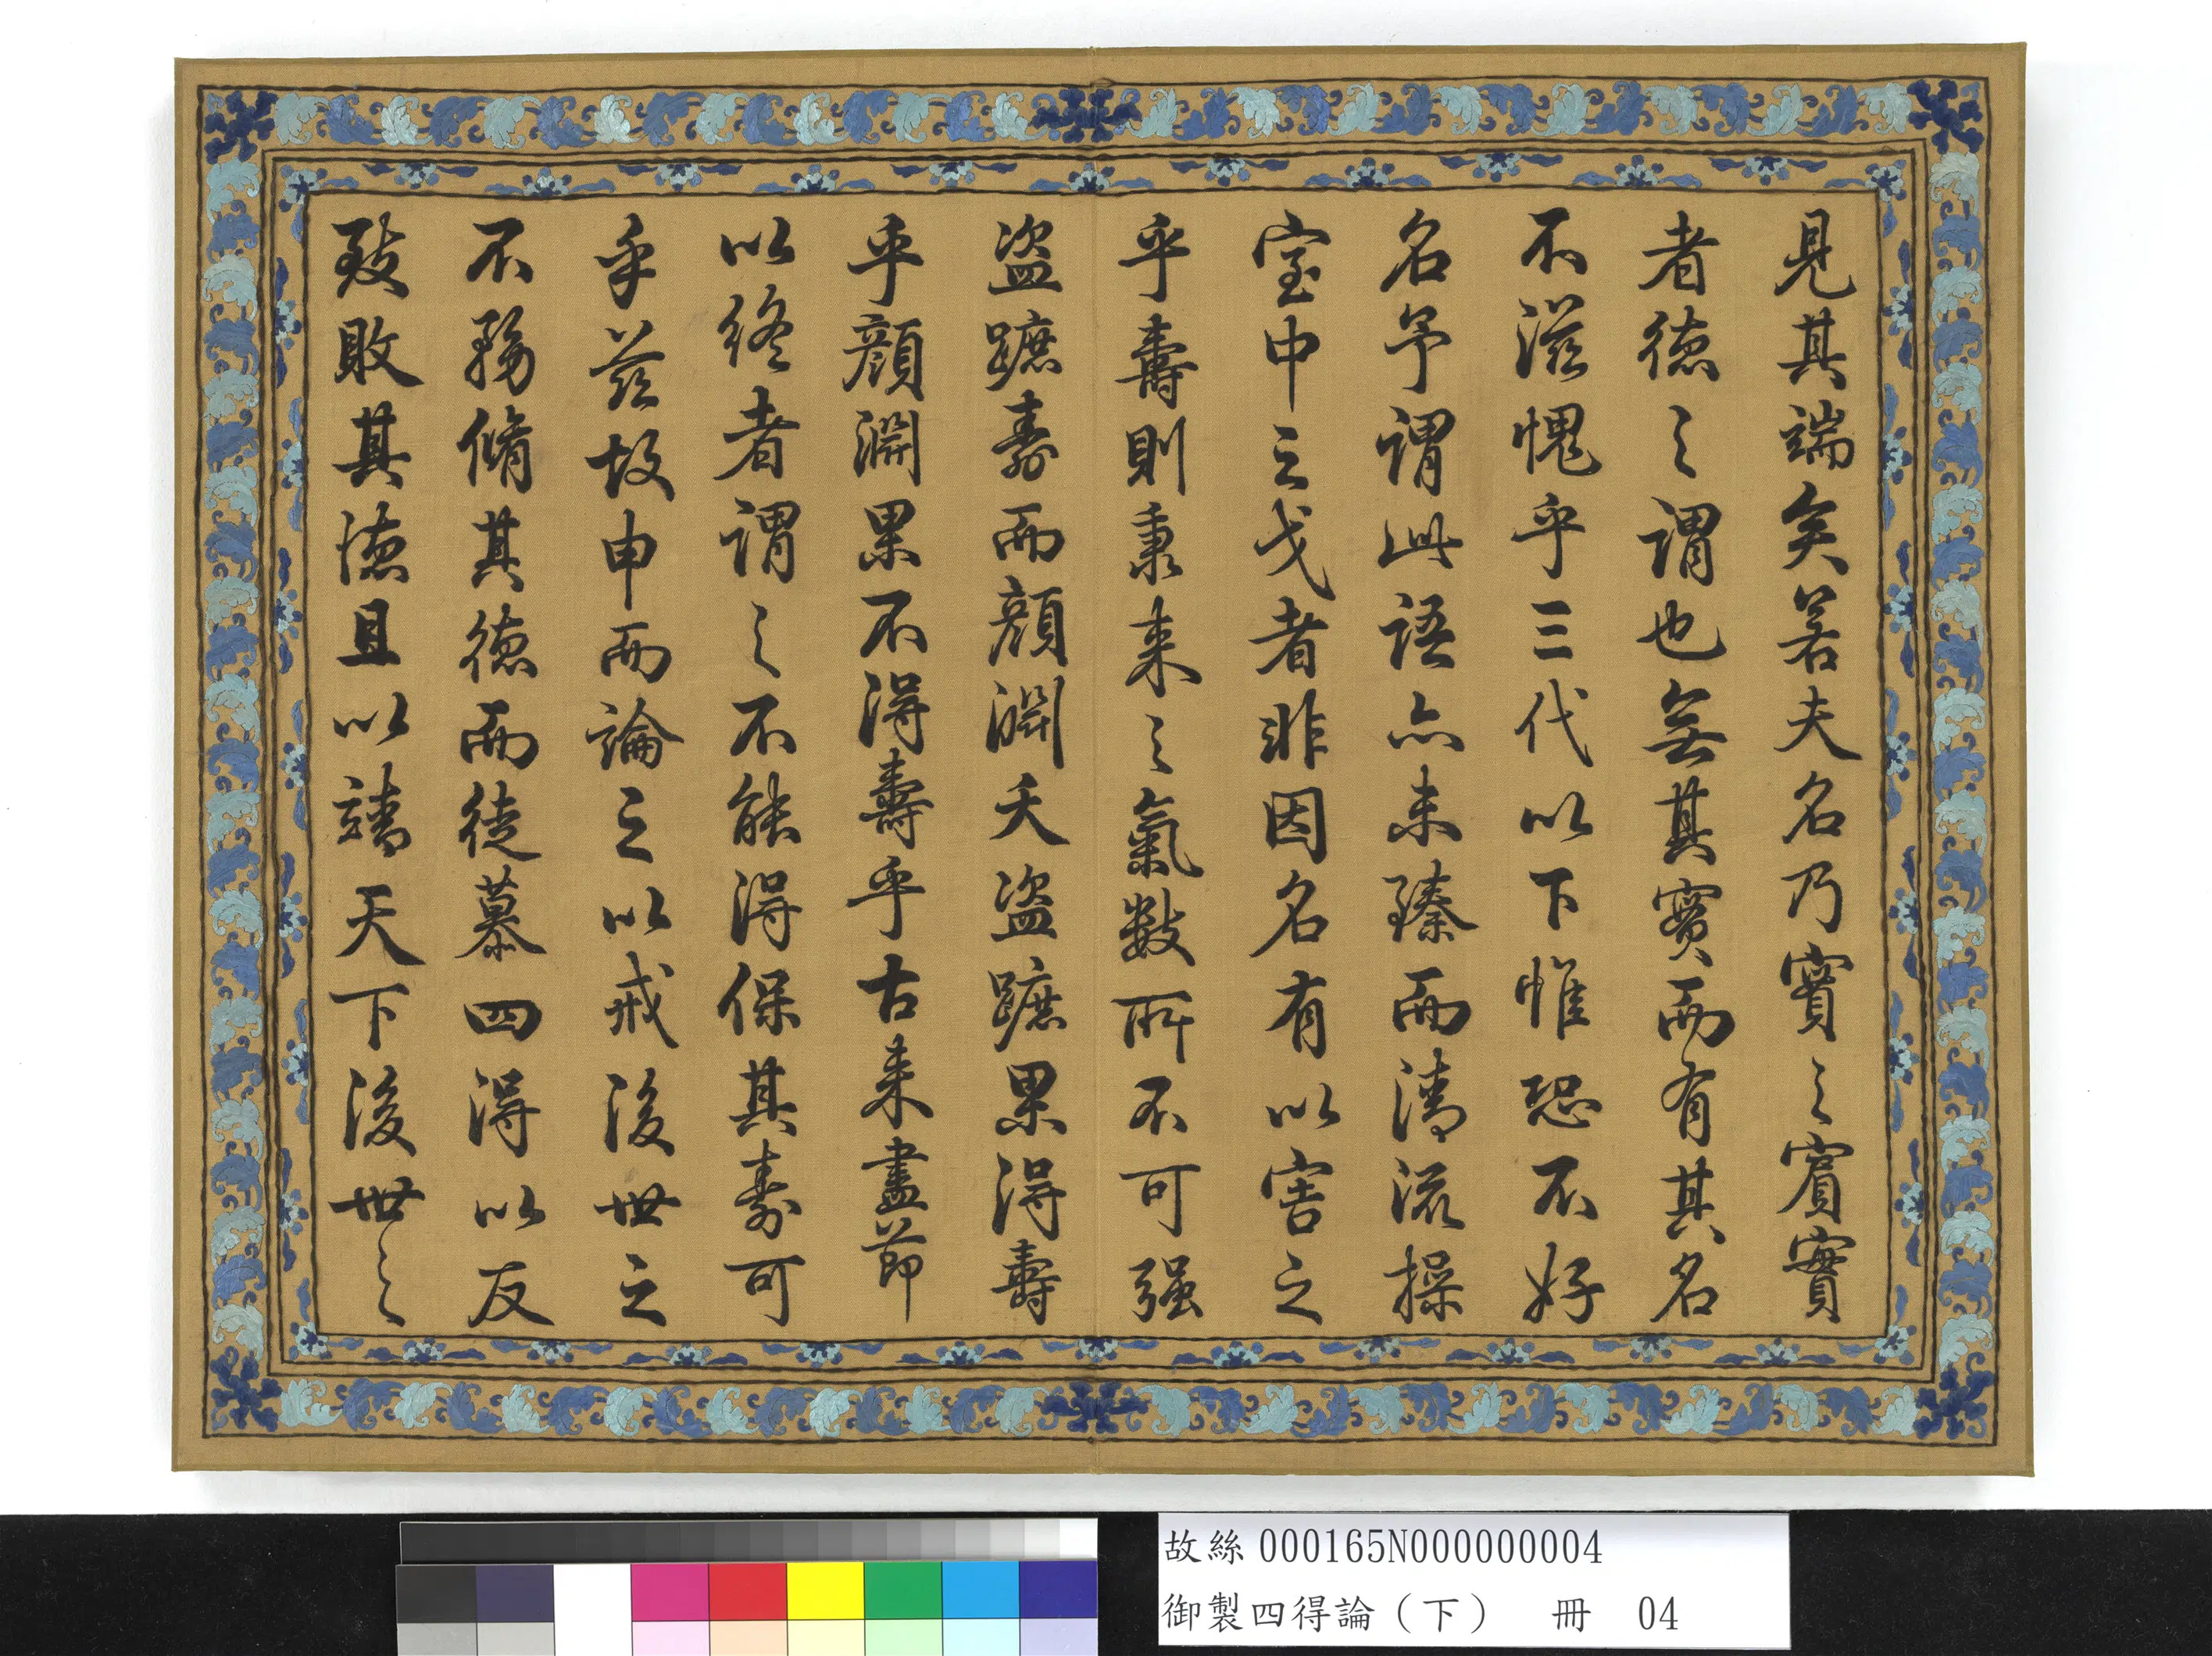 見其端矣若夫名乃實之賓實
者德之謂也無其實而有其名
不滋愧乎三代以下惟恐不好
名予謂此語亦未臻而清流操
室中之戈者非因名有以害之
乎壽則秉来之氣數所不可强
盜蹠壽而顏淵夭盜蹠果得壽
乎顏淵果不得壽乎古来盡節
以終者謂之不能得保其壽可
乎茲故申而論之以戒後世之
不務脩其德而徒慕四得以反
致敗其德且以靖天下後世之
故絲 000165N000000004
御製四得論（下） 冊 04